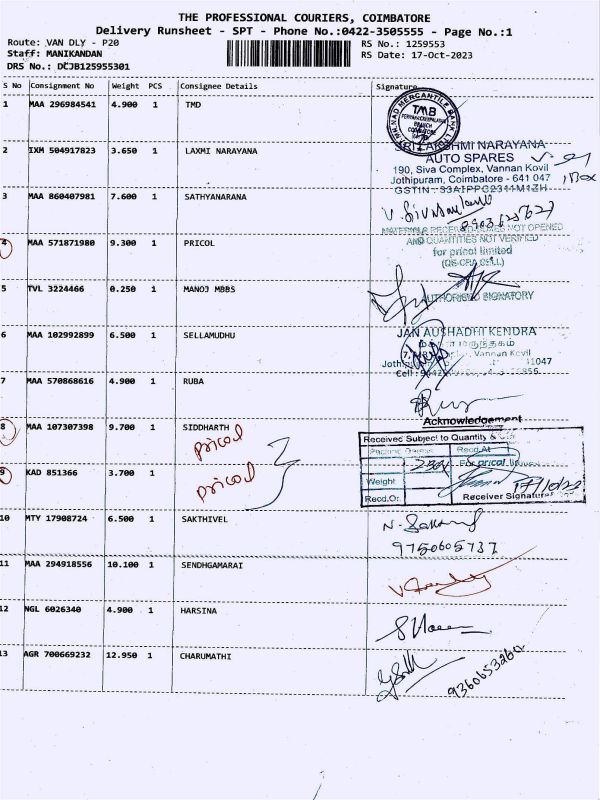 THE PROFESSIONAL COURIERS, COIMBATORE
Delivery Runsheet - SPT - Phone No.:0422-3505555 - Page No.:1
Route: VAN DLY - P20
RS No.: 1259553
Staff: MANIKANDAN
RS Date: 17-Oct-2023
DRS No.: DCJB125955301
S No Consignment No Weight PCS Consignee Details Signature
1 MAA 296984541 4.900 1 TMD
TMB
2 IXM 504917823 3.650 1 LAXMI NARAYANA
SRI LAKSHMI NARAYANA
AUTO SPARES
190, Siva Complex, Vannan Kovil
Jothipuram, Coimbatore - 641 047
GSTIN: 33AIPPG2311M1ZH
1 Box
3 MAA 860407981 7.600 1 SATHYANARANA
MATERIALS RECEIVED BOXES NOT OPENED
AND QUANTITIES NOT VERIFIED
4 MAA 571871980 9.300 1 PRICOL
for pricol limited
5 TVL 3224466 0.250 1 MANOJ MBBS
AUTHORISED SIGNATORY
6 MAA 102992899 6.500 1 SELLAMUDHU
JAN AUSHADHI KENDRA
Vannan Kovil
7 MAA 570868616 4.900 1 RUBA
8 MAA 107307398 9.700 1 SIDDHARTH
pricol
Acknowledgement
Received Subject to Quantity &
Recd.At
For pricol limited
9 KAD 851366 3.700 1
pricol
Weight
Recd.Or.
Receiver Signature
17/10/23
10 MTY 17908724 6.500 1 SAKTHIVEL
N. Sakthi
9750605737
11 MAA 294918556 10.100 1 SENDHGAMARAI
12 NGL 6026340 4.900 1 HARSINA
13 AGR 700669232 12.950 1 CHARUMATHI